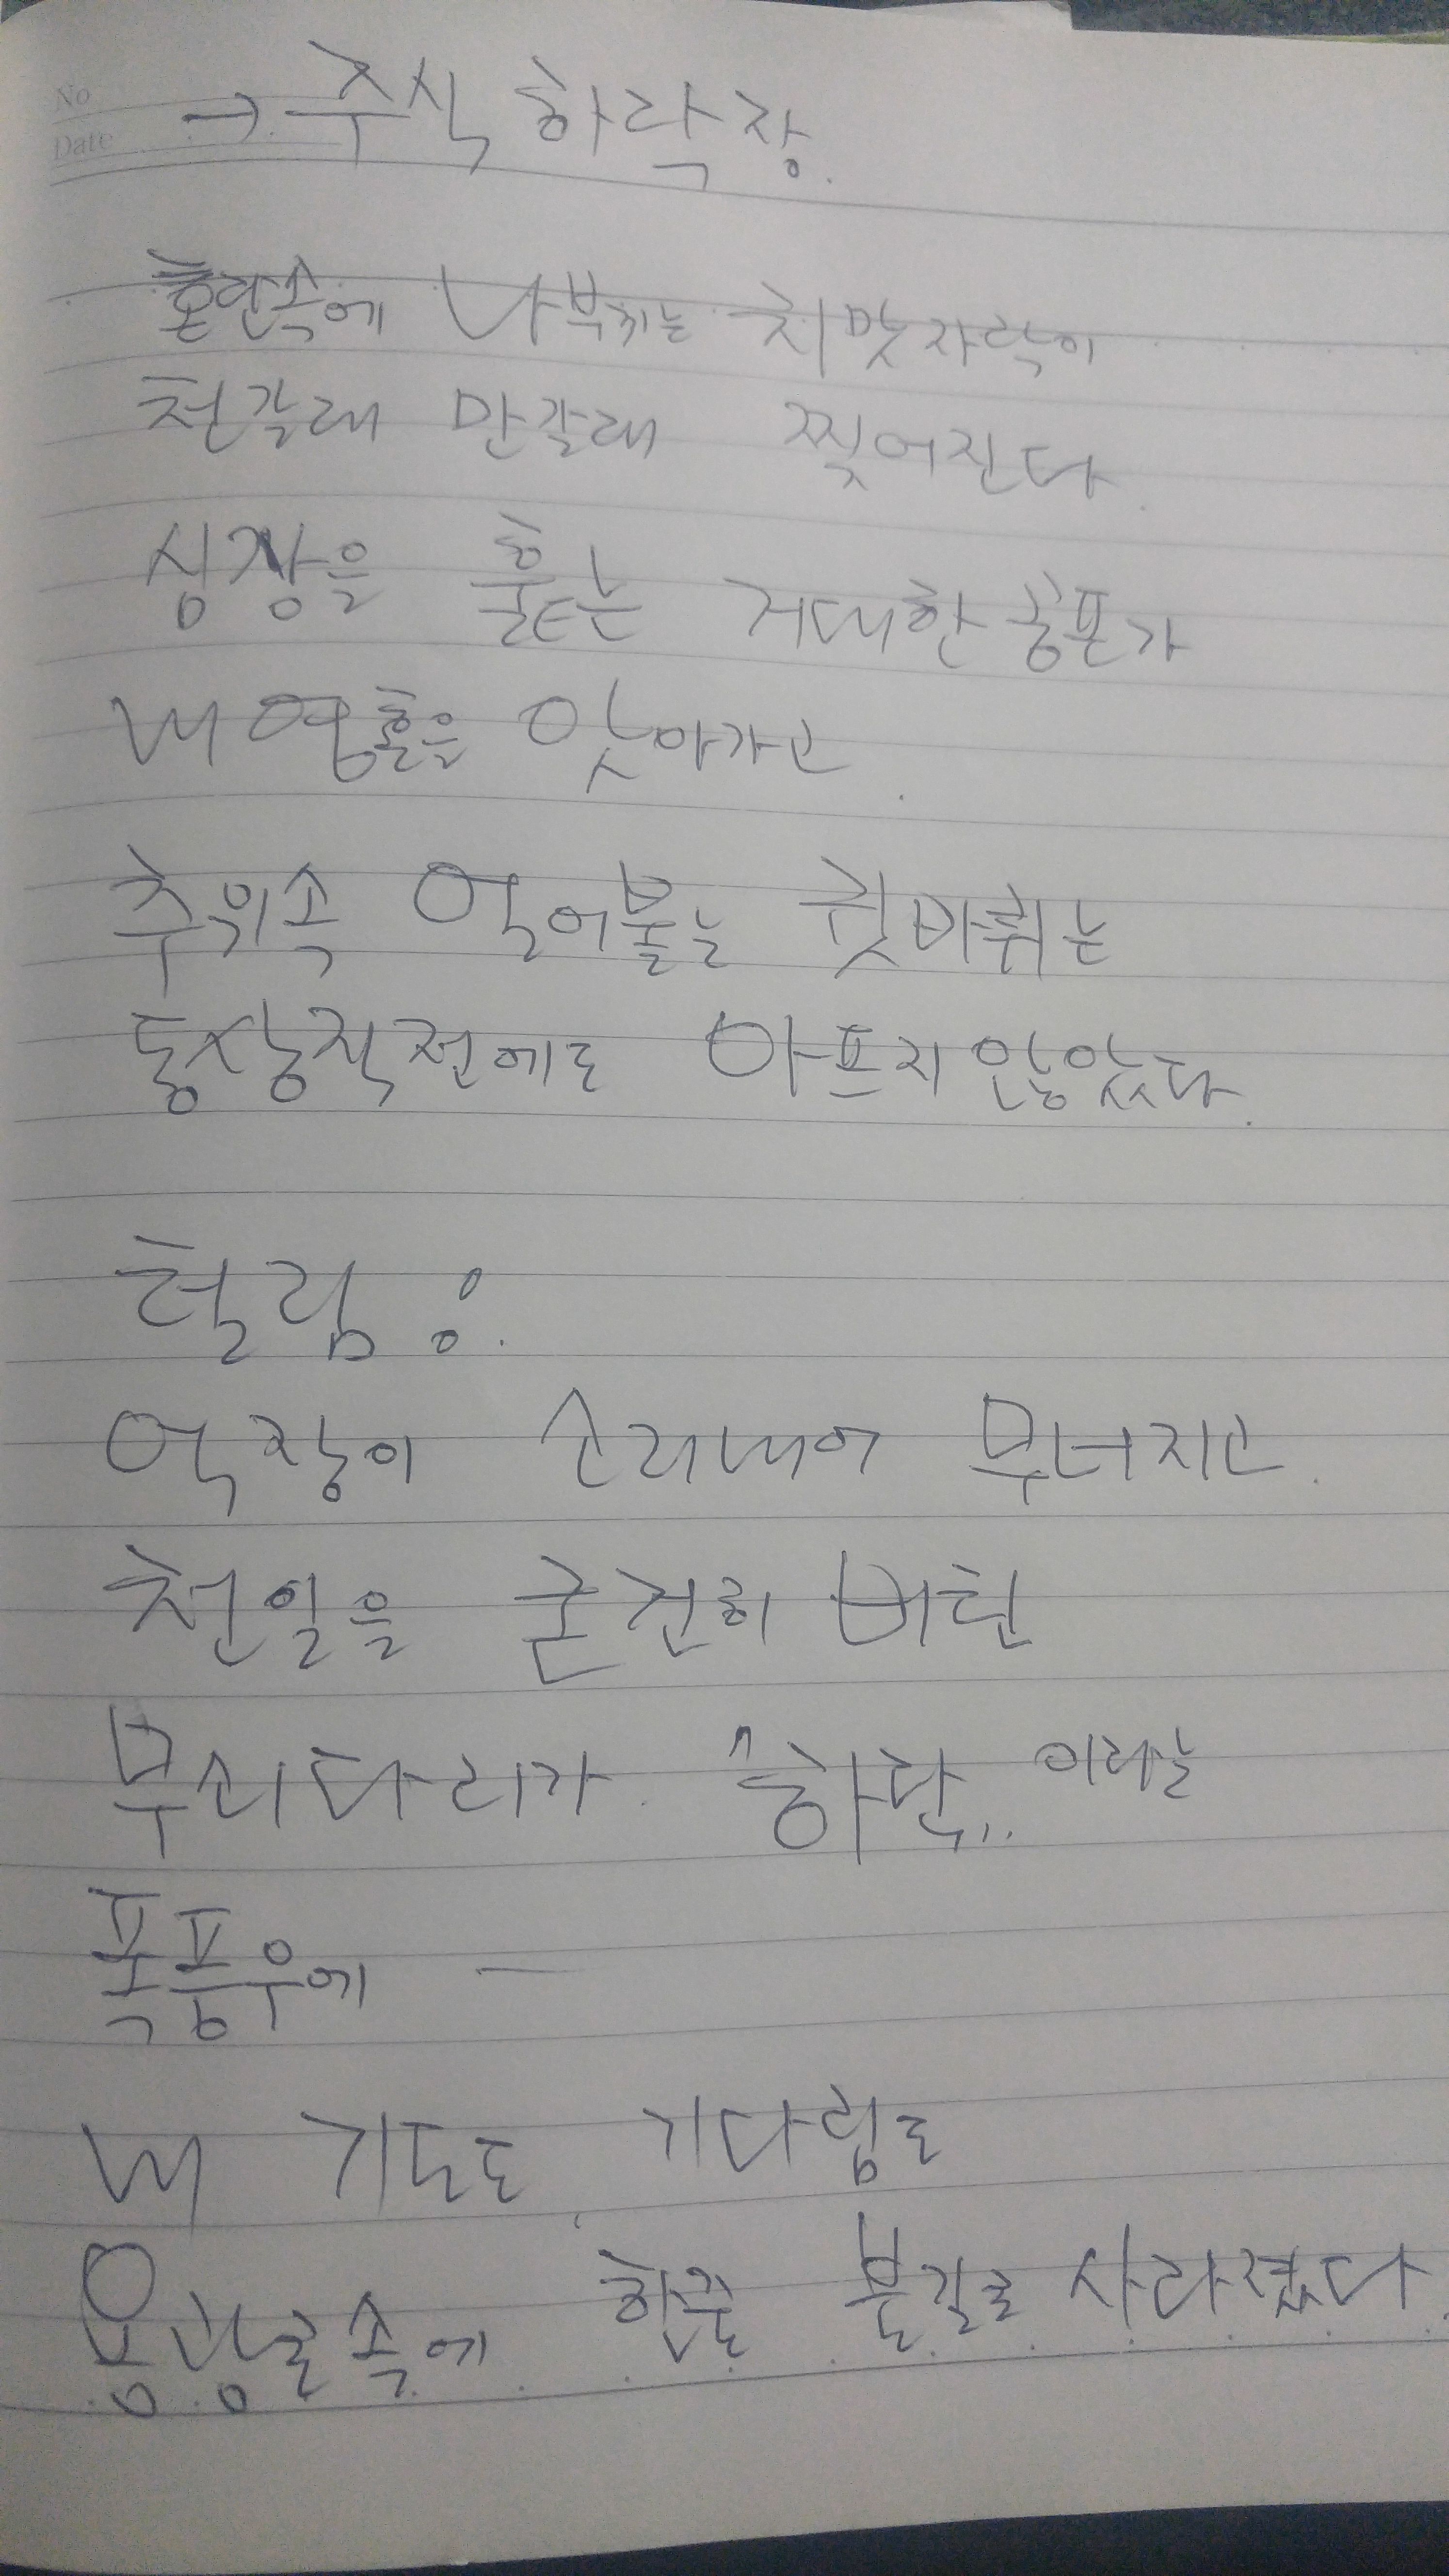 No
Date
→ 주식 하락장.
혼란속에 나부끼는 치맛자락이
천갈래 만갈래 찢어진다.
심장을 훑는 거대한 공포가
내 영혼을 앗아가고.
추위속 얼어붙는 귓바퀴는
동상직전에도 아프지 않았다.
헐림:
억장이 소리내어 무너지고.
천일을 굳건히 버틴
무쇠다리가 "하락" 이라는
폭풍우에 —
내 기도도 기다림도
용광로속에 한줌 불길로 사라졌다.